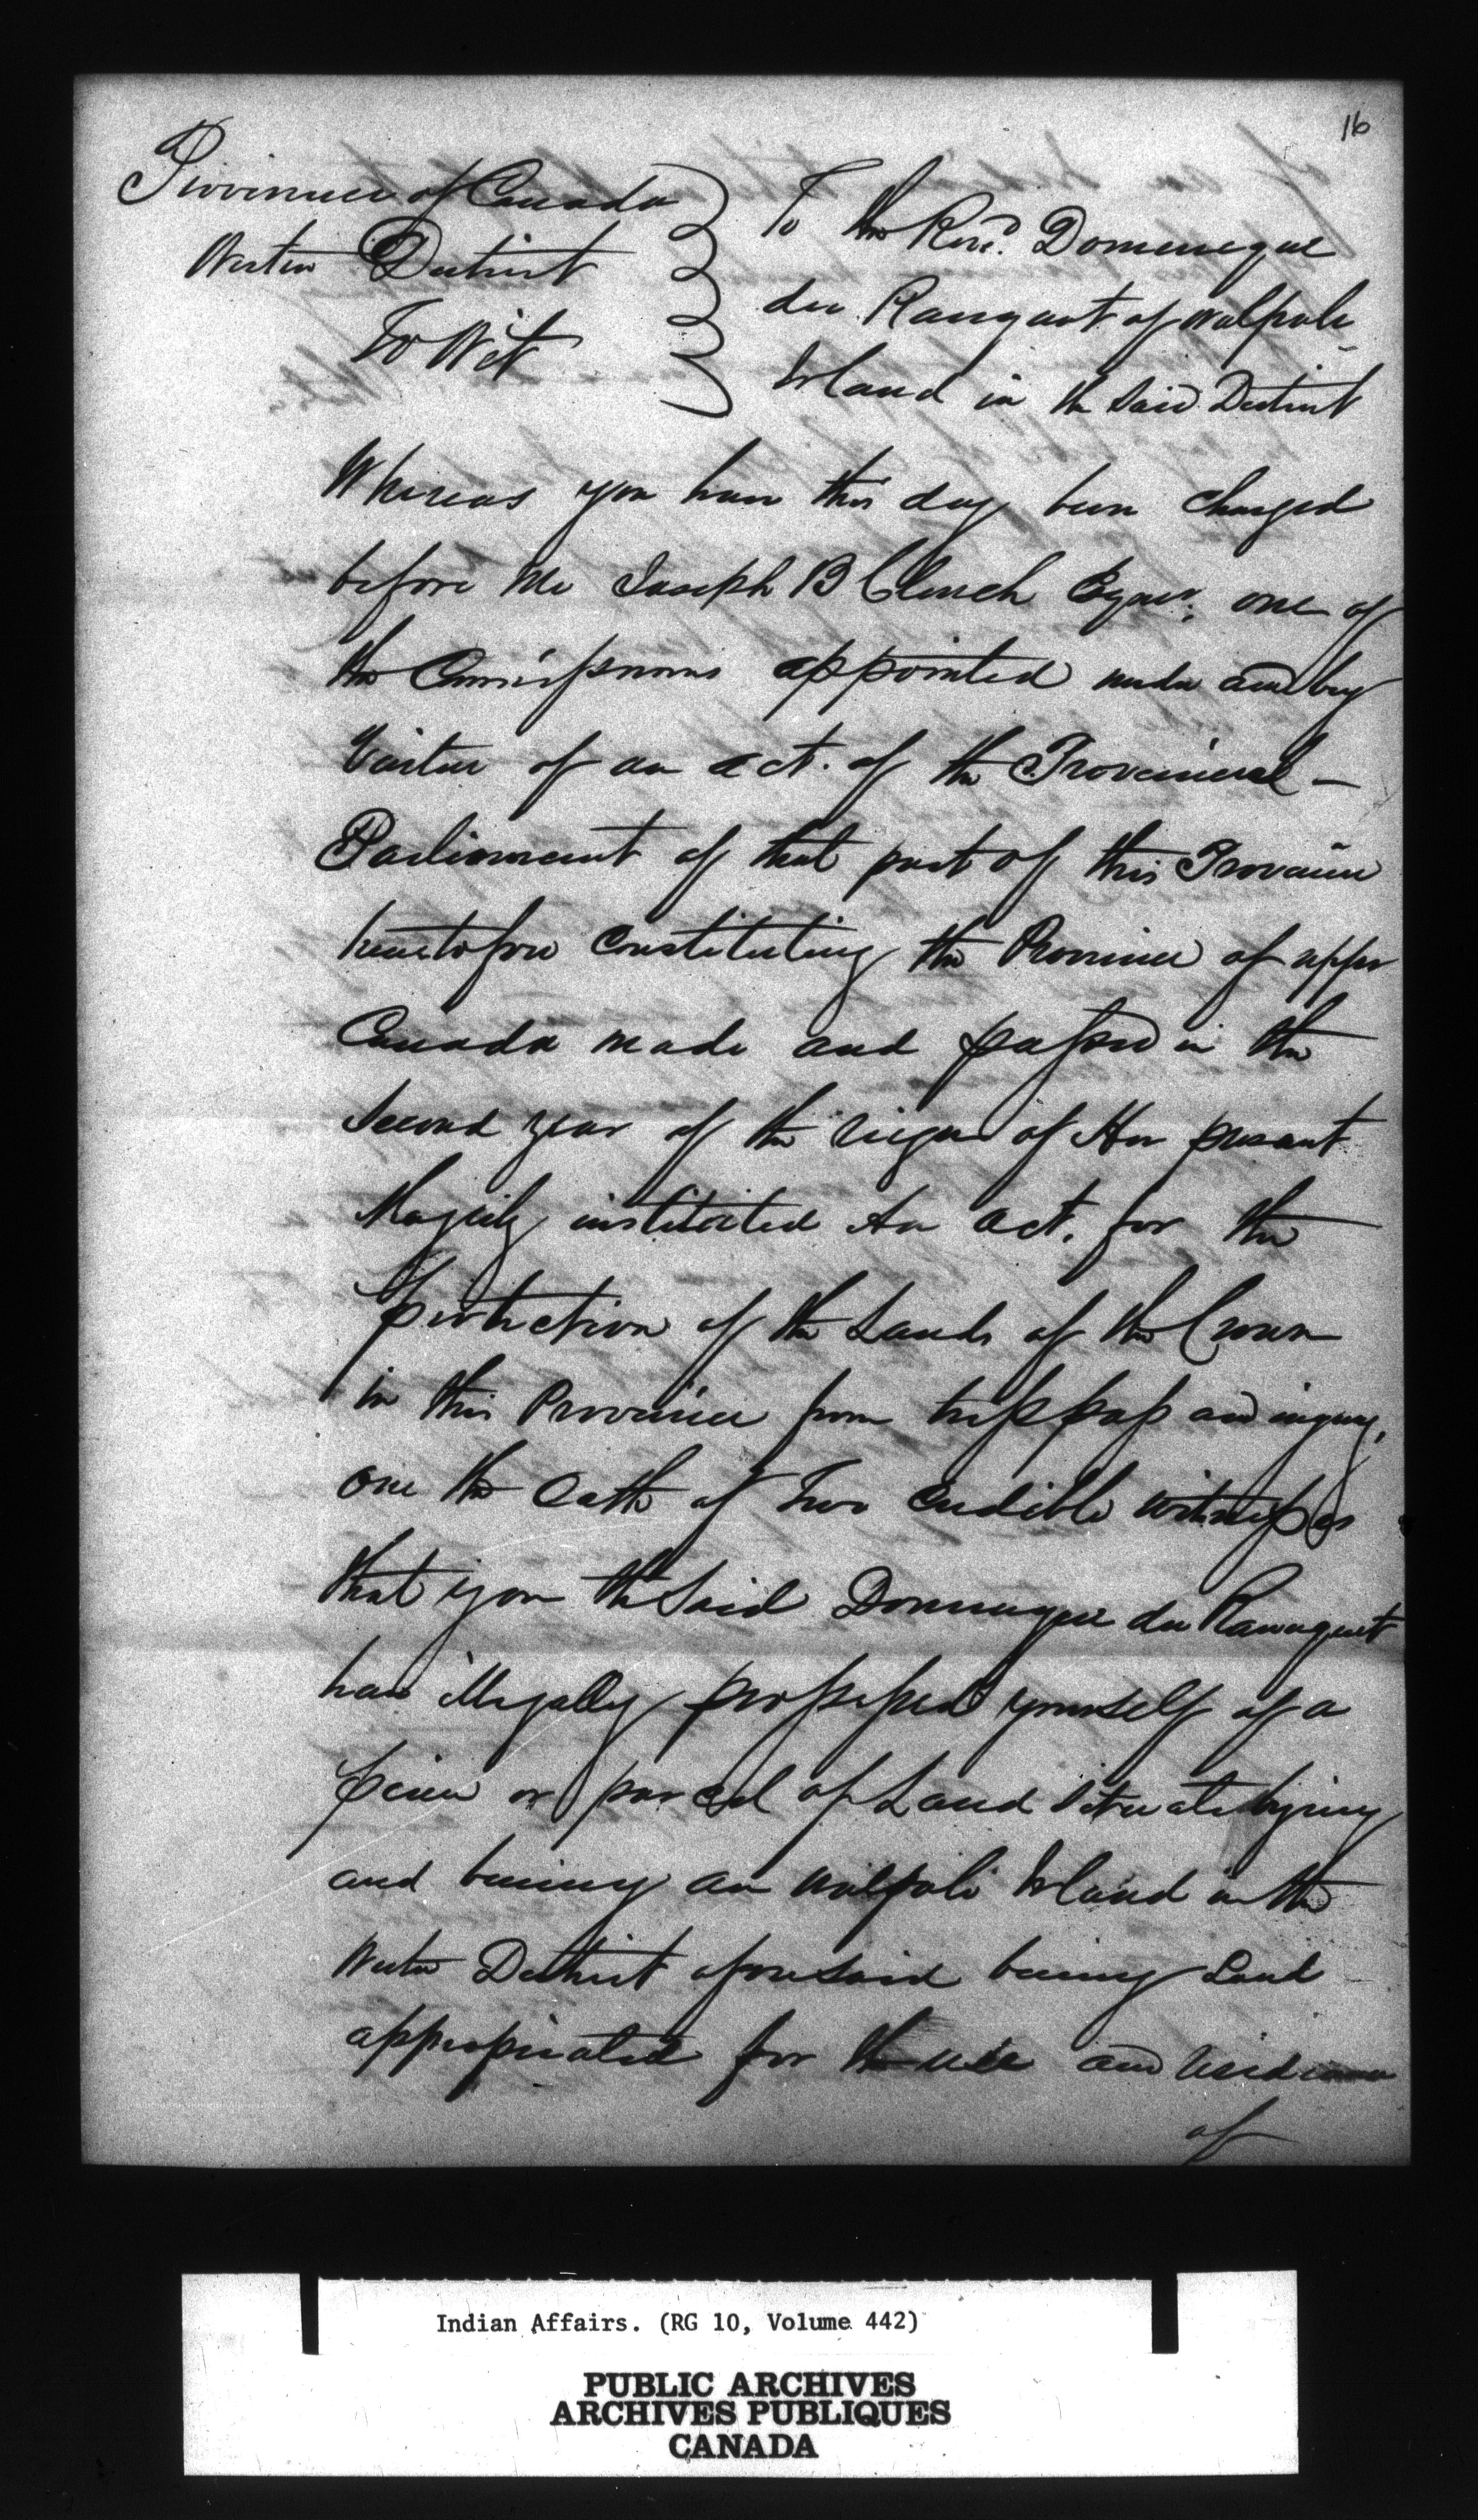 16
Province of Canada
Western District
To Wit
To the Revd. Domeneque
du Ranquet of Walpole
Island in the Said District
Whereas you have this day been charged
before me Joseph B Clench Esquire. one of
the Commissioners appointed under and by
Virtue of an act. of the Provincial -
Parliament of that part of this Province
heretofore Constituting the Province of upper
Canada made and passed in the
Second year of the reign of Her present
Majesty instituted An act. for the
protection of the Lands of the Crown
in this Province from tresspass and injury,
one the Oath of Two Credible witnesses
that you the Said Domeneque du Ranquet
has illegally possessed yourself of a
piece or parcel of Land Situate lying
and being an Walpole Island in the
Western District aforesaid being Land
appropriated for the use and residence
of
Indian Affairs. (RG 10, Volume 442)
PUBLIC ARCHIVES
ARCHIVES PUBLIQUES
CANADA